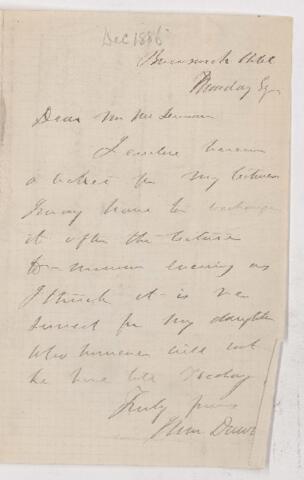 Dec 1886
Brunswick Hotel
Monday Eg
Dear Mr
I enclose herein
a ticket for my lecture
I may have to exchange
it after the lecture
to-morrow evening as
I think it is
for my daughter
who however will not
be here till
Truly yours